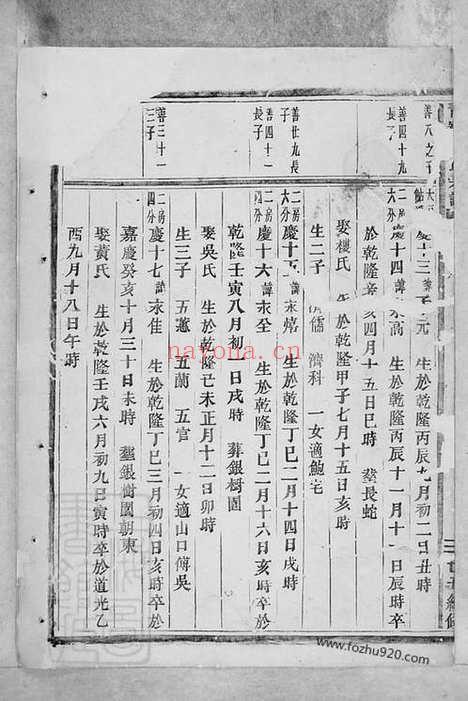 善四十九長子
善世九長子
善四十一長子
善三十一三子
生於乾隆丙辰九月初二日丑時
二房六分 慶十四 諱永高 生於乾隆丙辰十一月十一日辰時卒
於乾隆辛亥四月十五日巳時 塟長蛇
娶樓氏 生於乾隆甲子七月十五日亥時
生二子 儒 濟科 一女適鮑宅
二房六分 慶十五 諱永 生於乾隆丁巳二月十四日戌時
二房四分 慶十六 諱永全 生於乾隆丁巳二月十六日亥時卒於
乾隆壬寅八月初一日戌時 葬銀樹園
娶吳氏 生於乾隆己未正月十二日卯時
生三子 五蕙 五蘭 五官 一女適山口傅吳
二房四分 慶十七 諱永佳 生於乾隆丁巳三月初四日亥時卒於
嘉慶癸亥十月三十日未時 塟銀樹園朝東
娶黃氏 生於乾隆壬戌六月初九日寅時卒於道光乙
酉九月十八日午時
nayona.cn
www.fozhu920.com